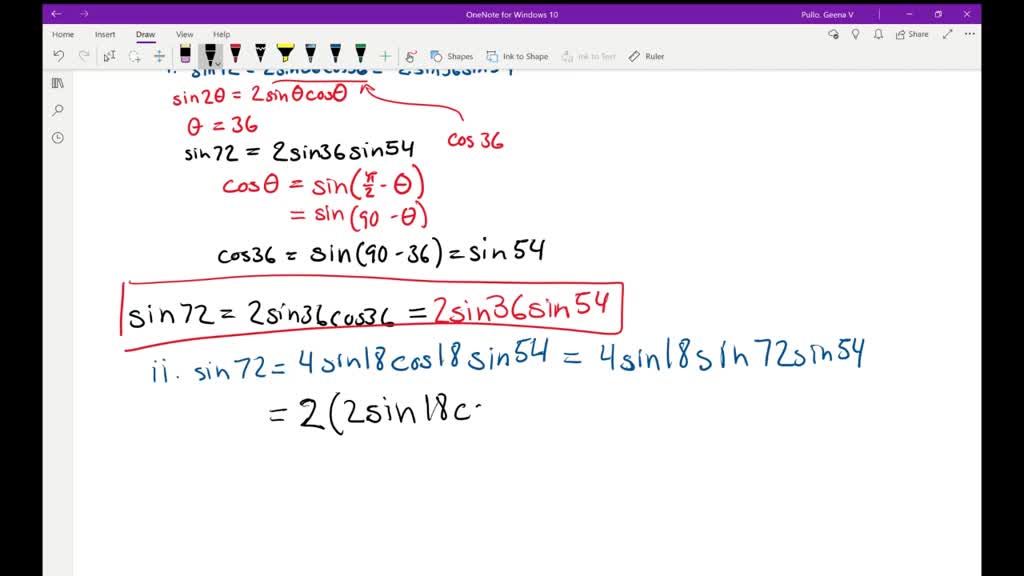 OneNote for Windows 10
Pullo, Geena V
Home Insert Draw View Help
Share
Shapes Ink to Shape Ink to Text Ruler
sin2θ = 2sinθcosθ
θ = 36
cos 36
sin72 = 2sin36sin54
cosθ = sin(π/2 - θ)
= sin(90 - θ)
cos36 = sin(90 - 36) = sin54
sin72 = 2sin36cos36 = 2sin36sin54
ii. sin72 = 4sin18cos18sin54 = 4sin18sin72sin54
= 2(2sin18c